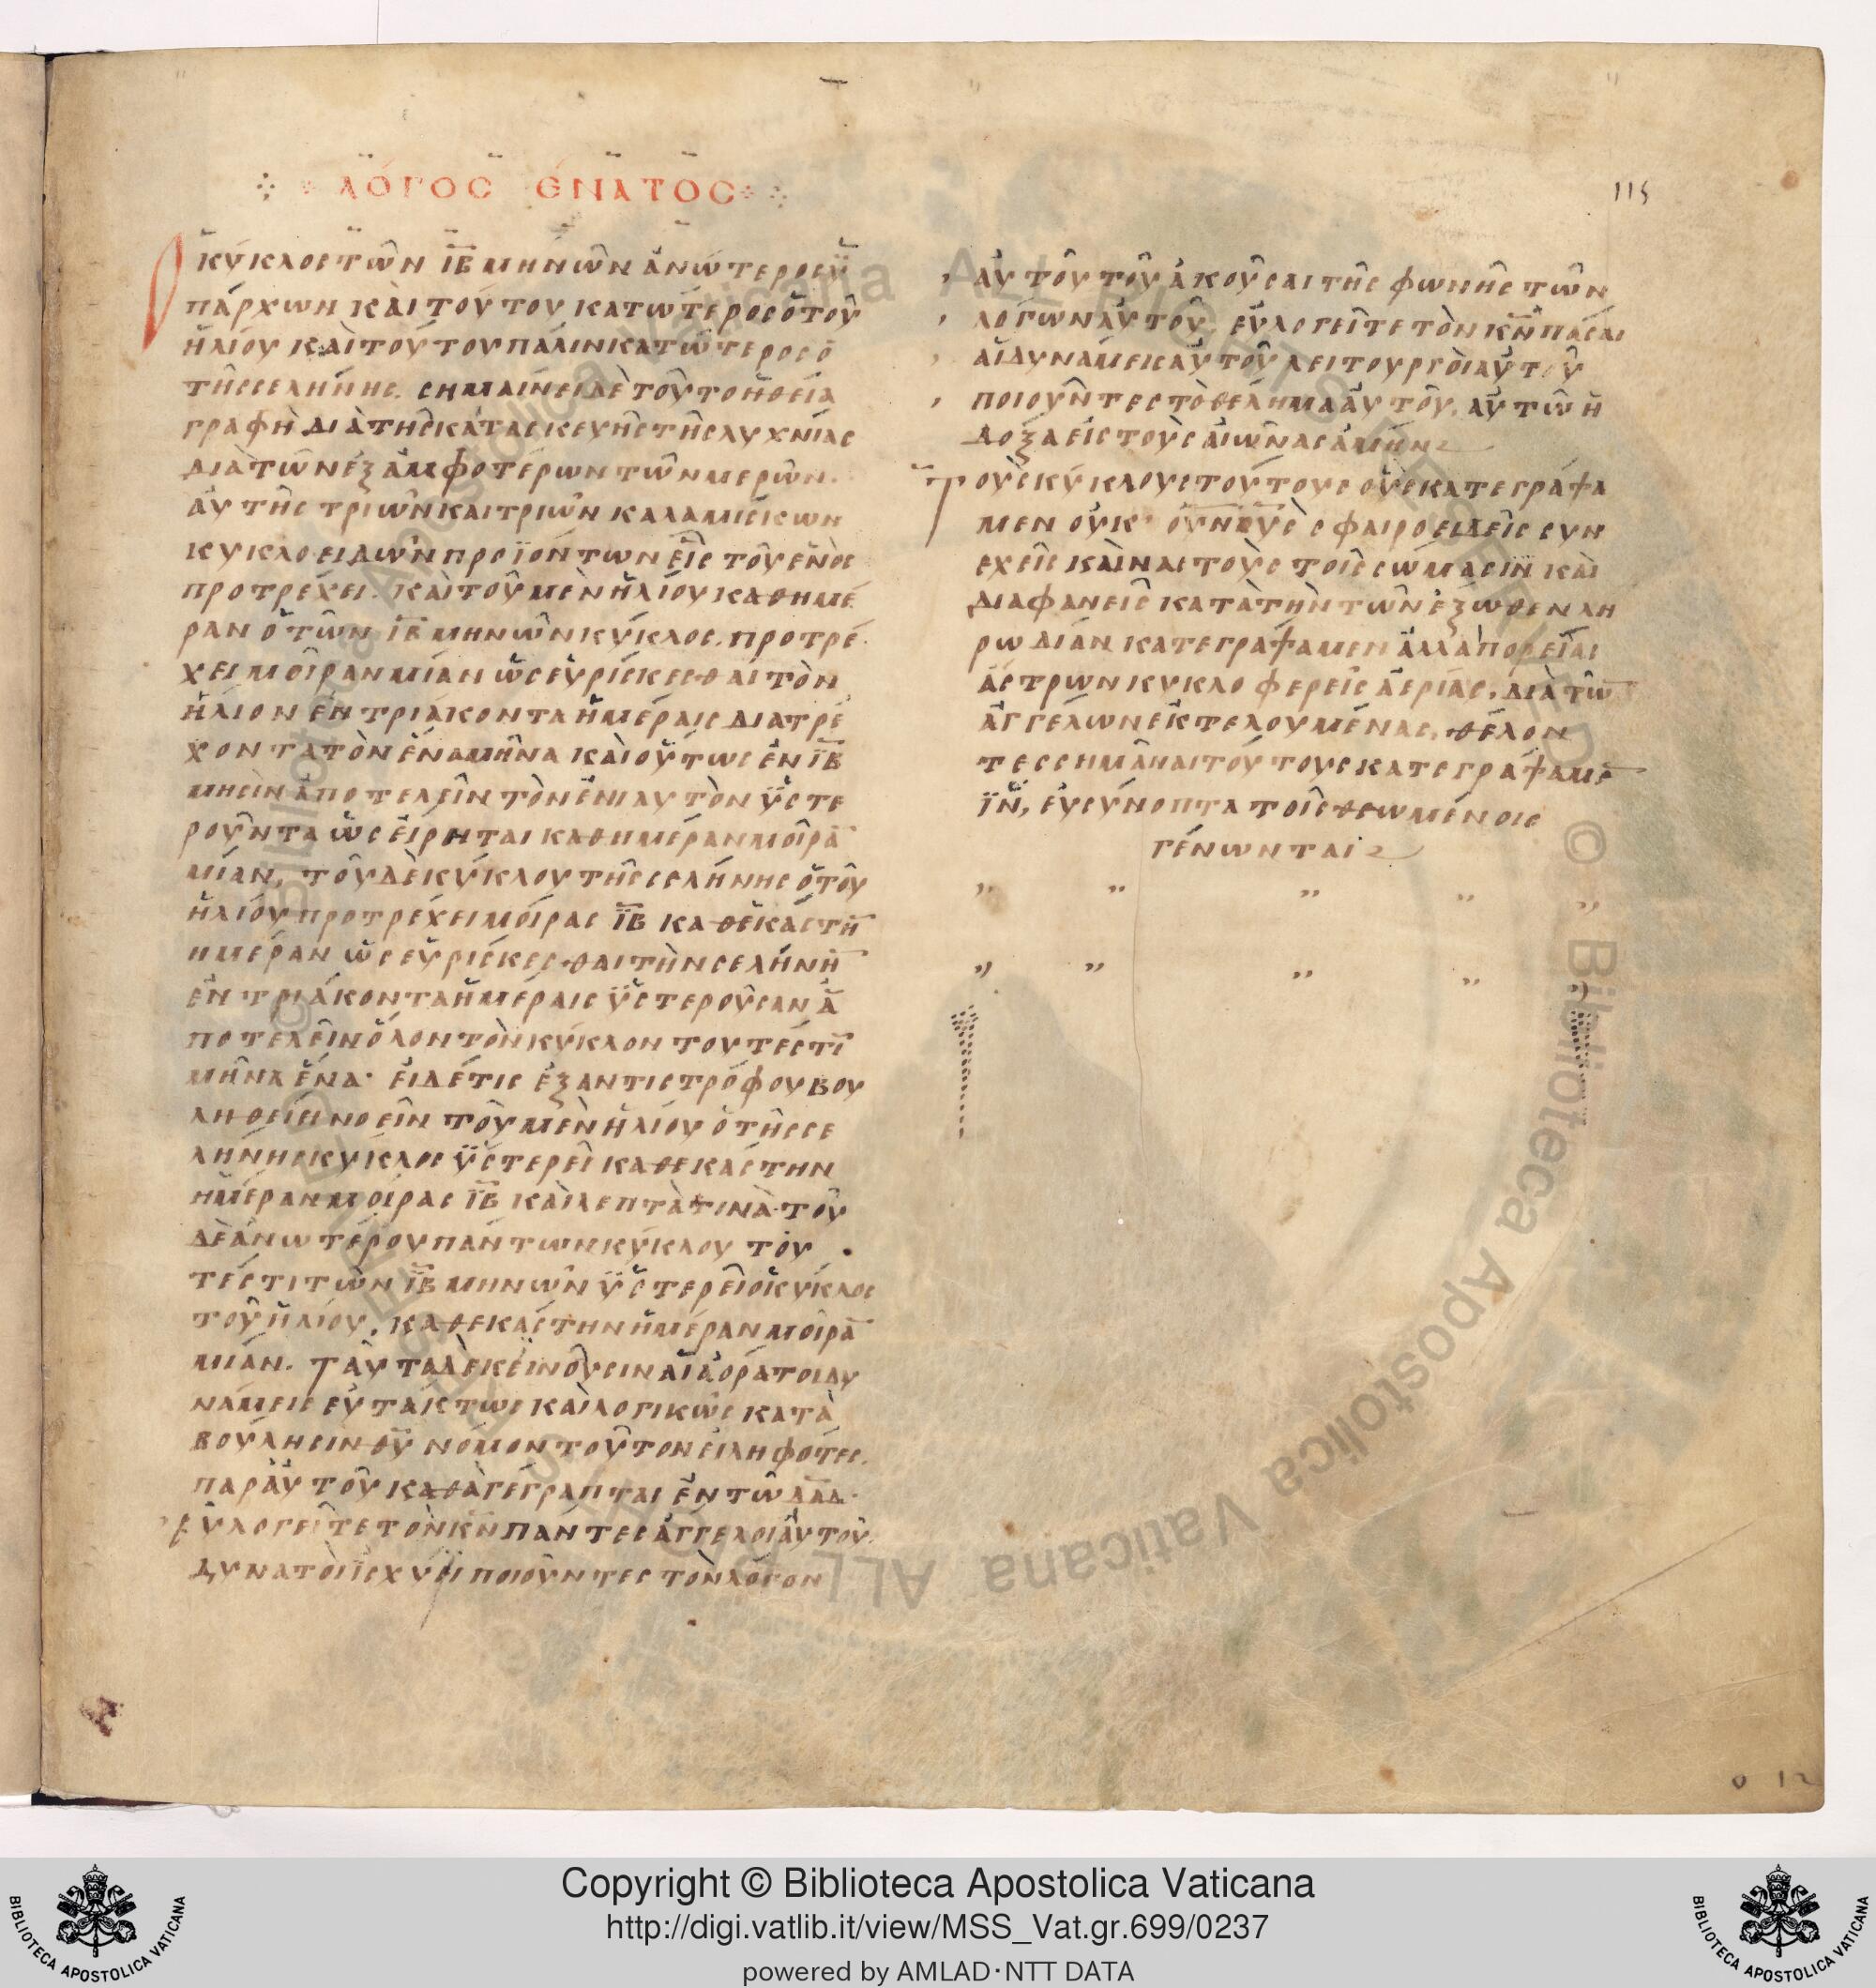 ΛΌΓΟC ΕΝΑΤΟC
115
Ὁ κύκλος τῶν ΙΒ μηνῶν ἀνώτερος ὑ
πάρχων καὶ τούτου κατώτερος ὁ τοῦ
ἡλίου καὶ τούτου πάλιν κατώτερος ὁ
τῆς σελήνης. σημαίνει δὲ τοῦτο ἡ θεία
γραφὴ διὰ τῆς κατασκευῆς τῆς λυχνίας
διὰ τῶν ἐξ ἀμφοτέρων τῶν μερῶν.
αὐτῆς τριῶν καὶ τριῶν καλαμίσκων
κυκλοειδῶν προϊόντων εἷς τοῦ ἑνὸς
προτρέχει. καὶ τοῦ μὲν ἡλίου καθημέ
ραν ὁ τῶν ΙΒ μηνῶν κύκλος, προτρέ
χει μοῖραν μίαν ὡς εὑρίσκεσθαι τὸν
ἥλιον ἐν τριάκοντα ἡμέραις διατρέ
χοντα τὸν ἕνα μῆνα καὶ οὕτως ἐν ΙΒ
μησὶν ἀποτελεῖν τὸν ἐνιαυτὸν ὑστε
ροῦντα ὡς εἴρηται καθημέραν μοῖρα̅
μίαν, τοῦ δὲ κύκλου τῆς σελήνης ὁ τοῦ
ἡλίου προτρέχει μοίρας ΙΒ καθεκάστη̅
ημέραν ὡς εὑρίσκεσθαι τὴν σελήνη̅
ἐν τριάκοντα ἡμέραις ὑστεροῦσαν ἀ
ποτελεῖν ὅλον τὸν κύκλον τουτέστι̅
μῆνα ἕνα· εἰ δέ τις ἐξ ἀντιστρόφου βου
ληθείη νοεῖν τοῦ μὲν ἡλίου ὁ τῆς σε
λήνης κύκλος ὑστερεῖ καθεκάστην
ἡμέραν μοίρας ΙΒ καὶ λεπτά τινὰ· τοῦ
δὲ ἀνωτέρου πάντων κύκλου του
τέστι τῶν ΙΒ μηνῶν ὑστερεῖ ὁ κύκλος
τοῦ ἡλίου, καθεκάστην ἡμέραν μοῖρα̅
μίαν. Ταῦτα δὲ κεινοῦσιν αἱ ἀόρατοι δυ
νάμεις εὐτάκτως καὶ λογικῶς κατὰ
βούλησιν θ̅υ̅ νόμον τοῦτον εἰληφότες.
παρ᾽ αὐτοῦ καθὰ γέγραπται ἐν τῶ δ̅α̅δ̅·
εὐλογεῖτε τὸν κ̅ν̅ πάντες ἄγγελοι αὐτοῦ.
δυνατοὶ ἰσχύϊ ποιοῦντες τὸν λόγον
αὐτοῦ τοῦ ἀκοῦσαι τῆς φωνῆς τῶν
λόγων αὐτοῦ, εὐλογεῖτε τὸν κ̅ν̅ πᾶσαι
αἱ δυνάμεις αὐτοῦ λειτουργοὶ αὐτοῦ
ποιοῦντες τὸ θέλημα αὐτοῦ, αὐτῶ ἡ
δόξα εἰς τοὺς αἰῶνας ἀμήν
Τοὺς κύκλους τούτους οὓς κατεγράψα
μεν οὐκ οὐνους σφαιροειδεῖς συν
εχεῖς καὶ ναστοὺς τοῖς σώμασιν καὶ
διαφανεῖς κατὰ τὴν τῶν ἔξωθεν λη
ρωδίαν κατεγράψαμεν ἀλλὰ πορείας
ἄστρων κυκλοφερεῖς ἀερίας, διὰ τῶ̅
ἀγγέλων ἐκτελουμένας, θέλον
τες σημᾶναι τούτους κατεγράψαμε̅
ἵν, εὐσύνοπτα τοῖς θεωμένοις
γένωνται
Copyright © Biblioteca Apostolica Vaticana
http://digi.vatlib.it/view/MSS_Vat.gr.699/0237
powered by AMLAD·NTT DATA
BIBLIOTECA APOSTOLICA VATICANA
BIBLIOTECA APOSTOLICA VATICANA